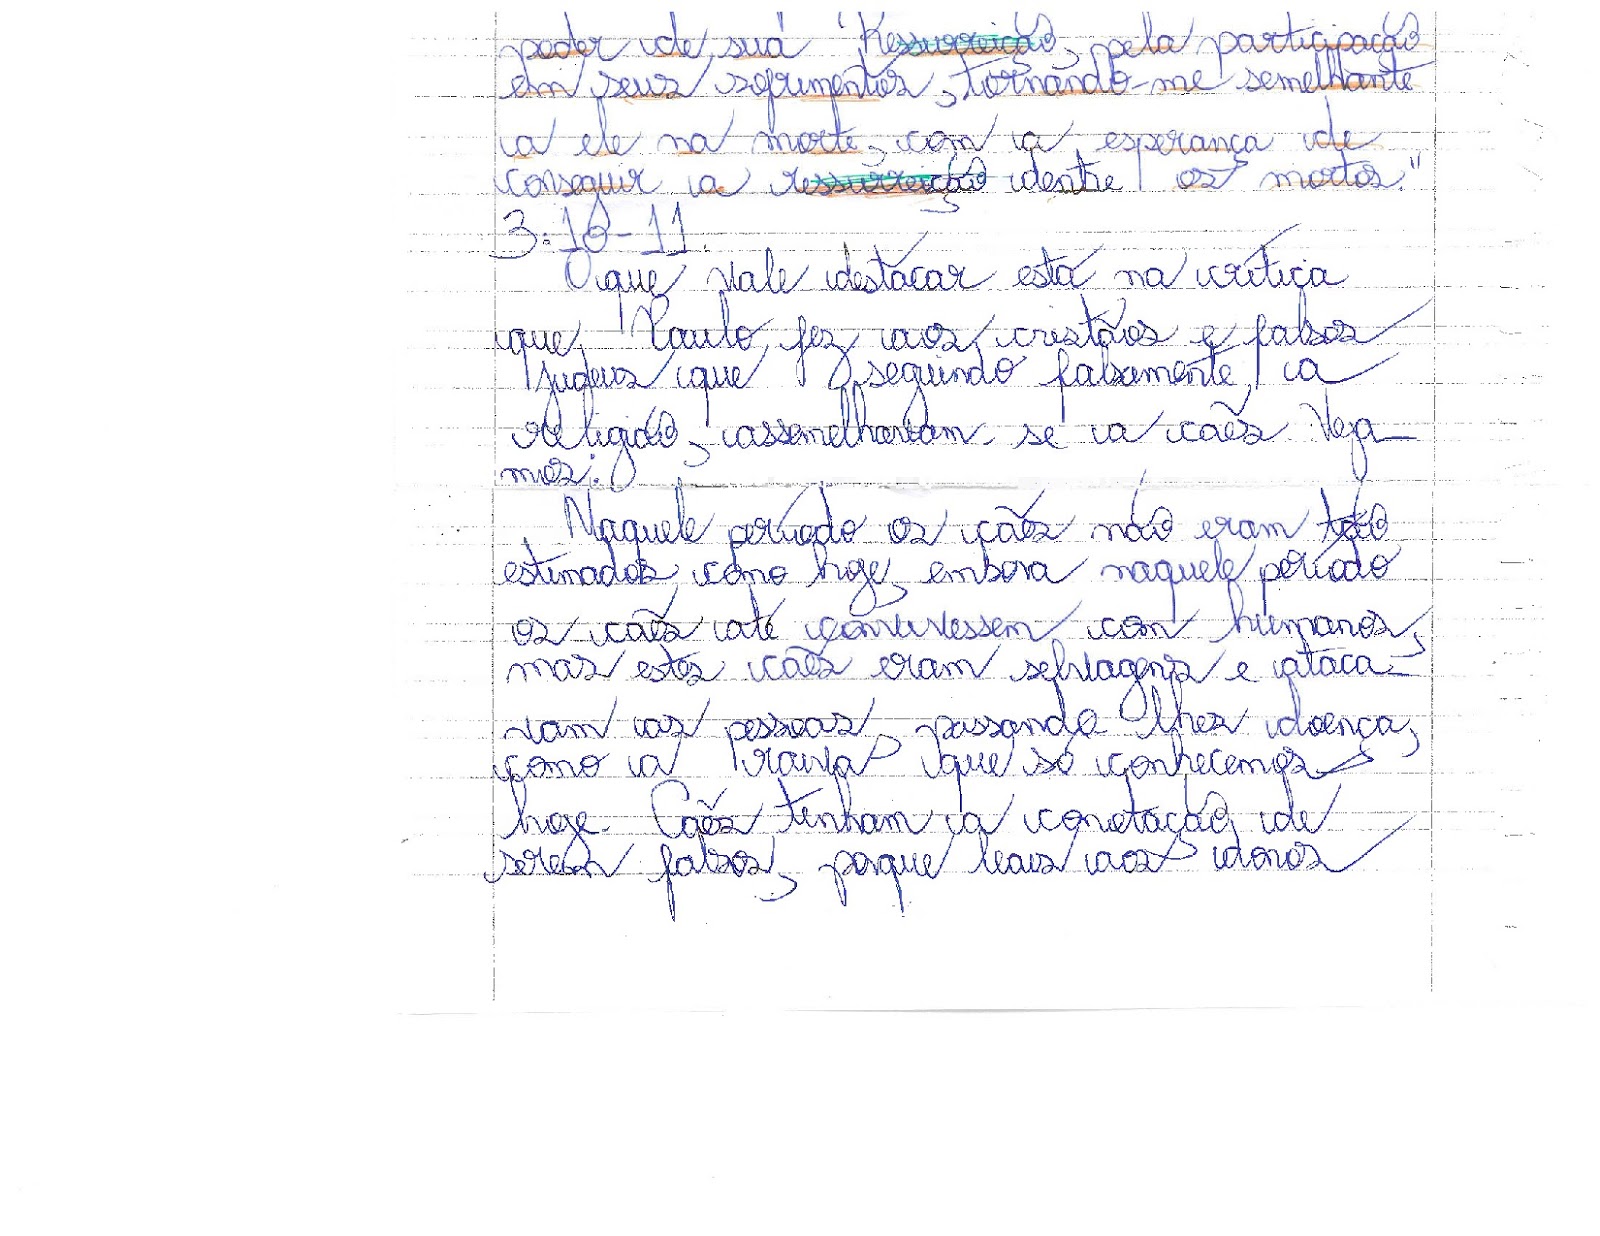 poder de sua Ressurreição, pela participação
em seus sofrimentos, tornando-me semelhante
a ele na morte, com a esperança de
conseguir a ressurreição dentre os mortos."
3:10-11.
O que vale destacar está na crítica
que Paulo fez aos cristãos e falsos
judeus que seguindo falsamente a
religião, assemelhavam-se a cães. Veja-
mos:
Naquele período os cães não eram tão
estimados como hoje, embora naquele período
os cães até convivessem com humanos,
mas estes cães eram selvagens e ataca-
vam as pessoas, passando lhes doença,
como a raiva que só conhecemos
hoje. Cães tinham a conotação de
serem falsos, porque leais aos donos